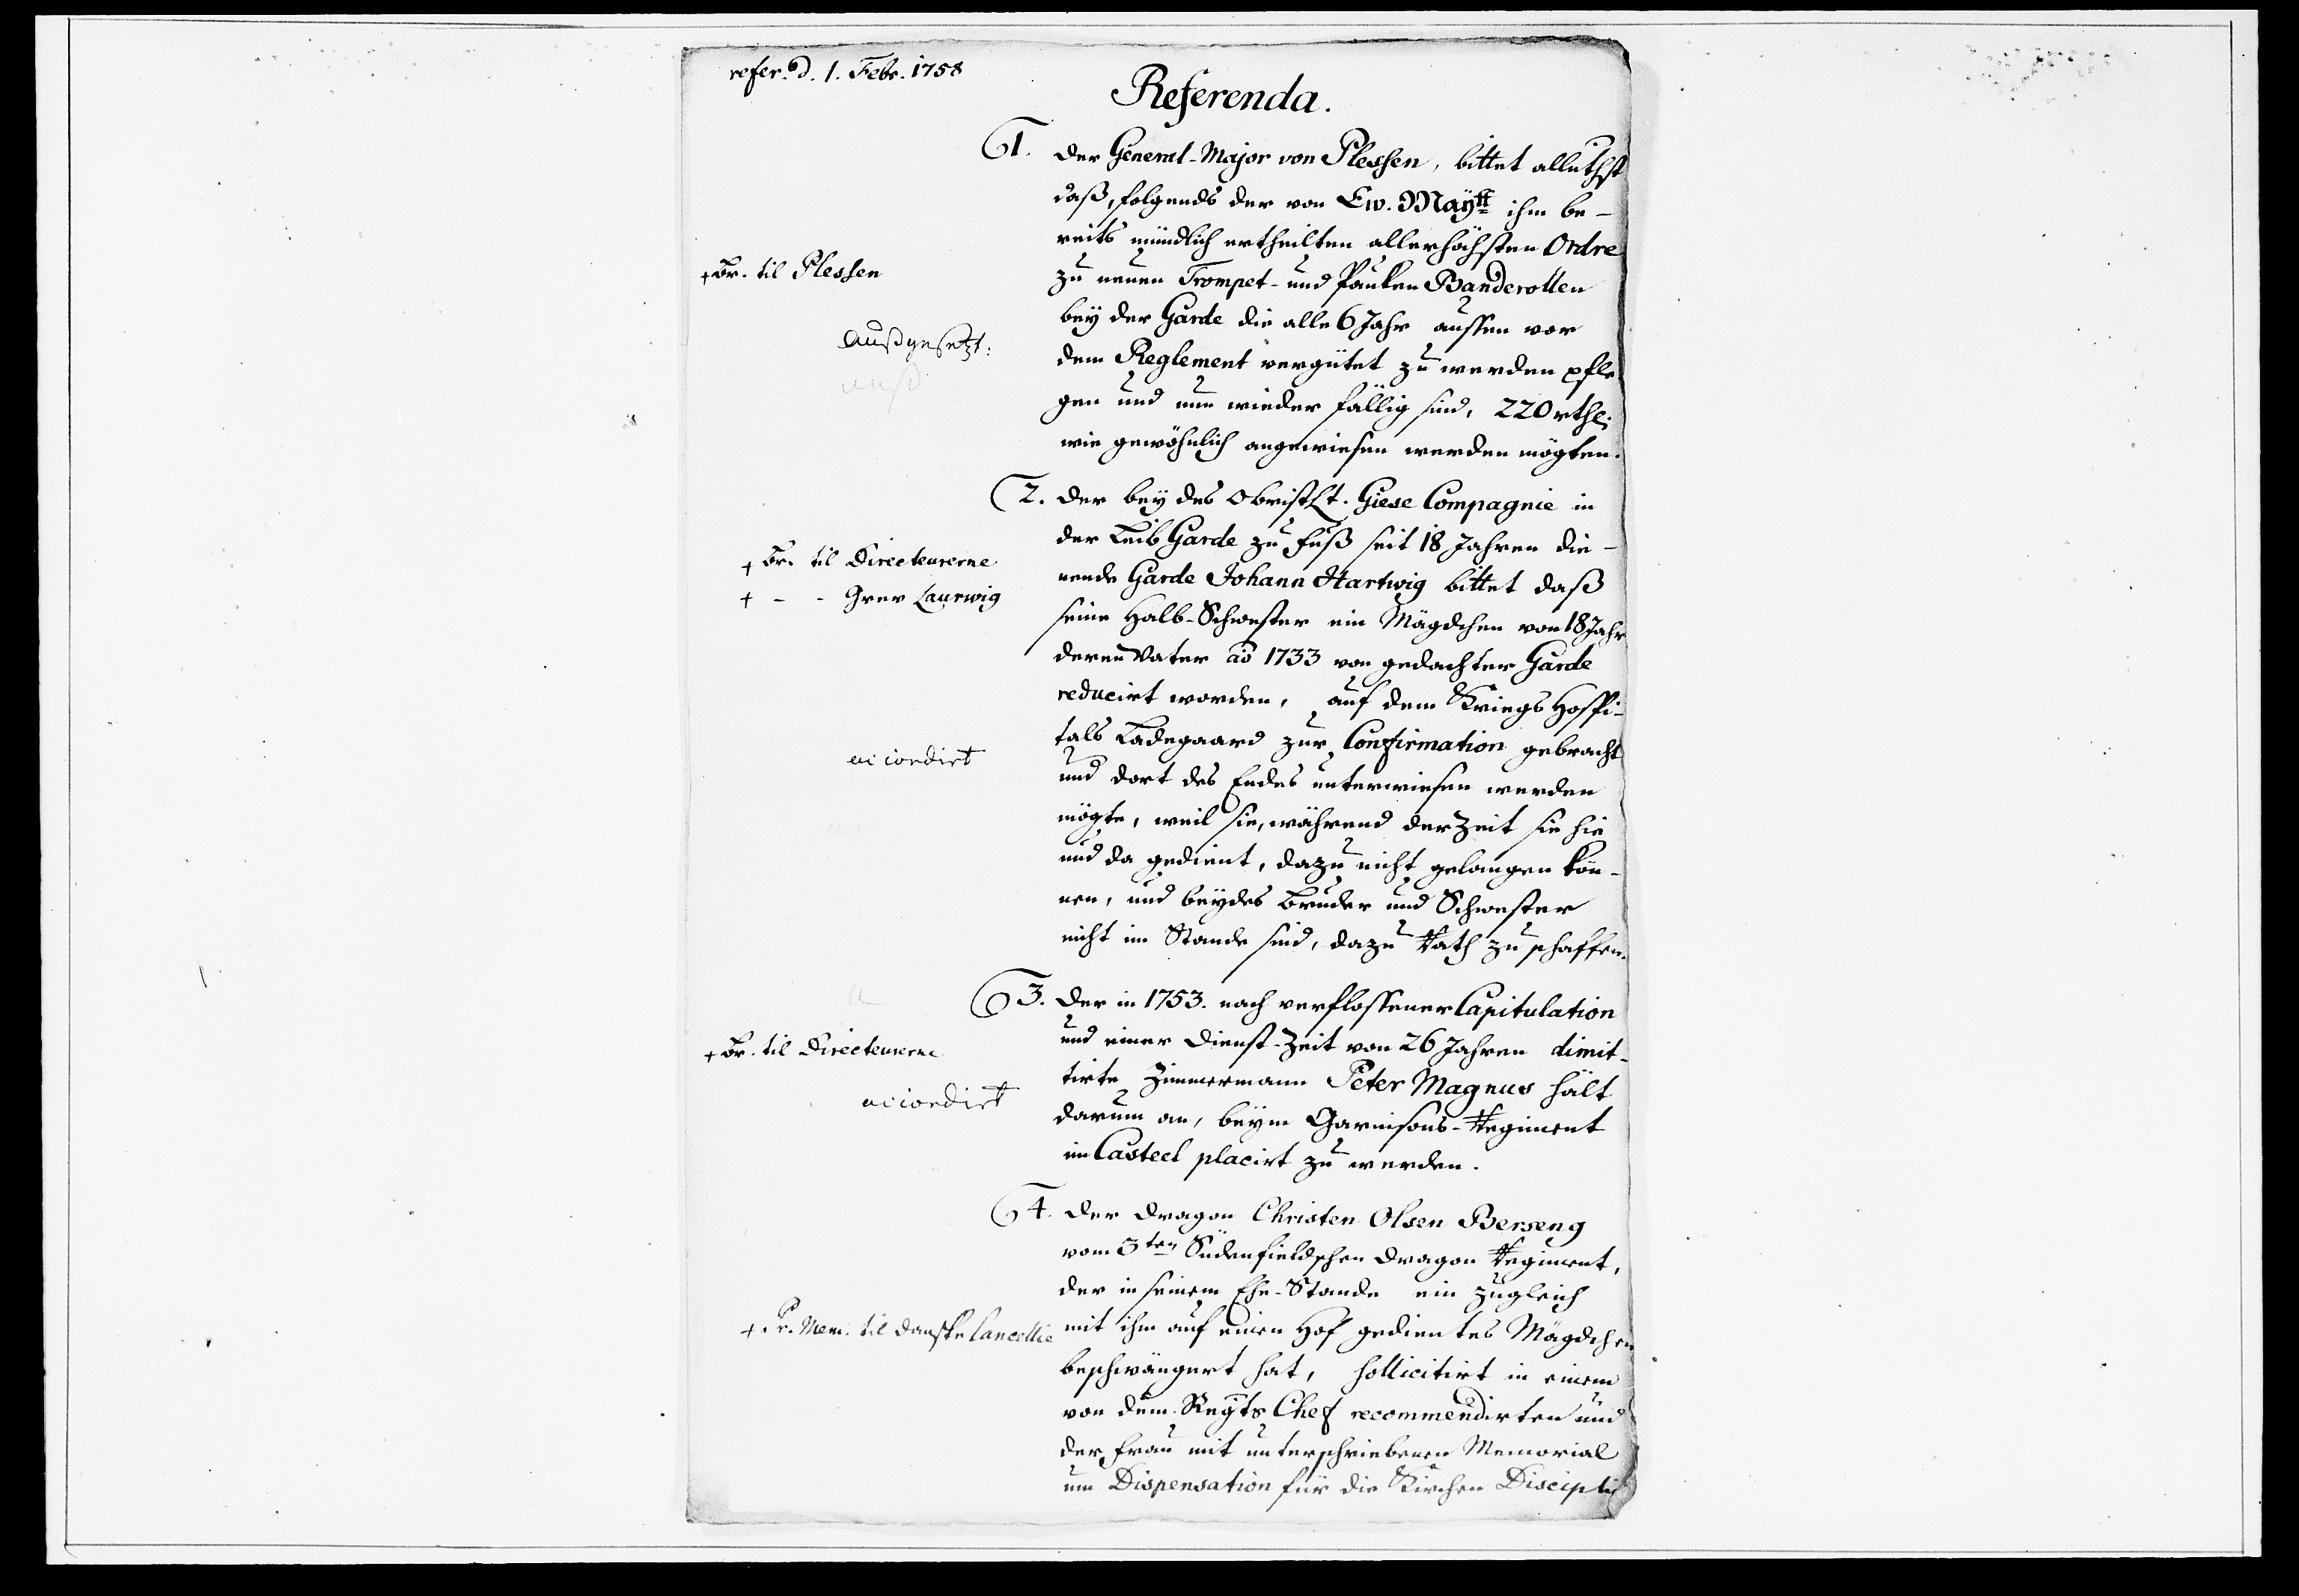 refer. d. 1. Febr. 1758
Referenda.
1. Der General-Major von Plessen, bittet alleruthst
daß, folgends der von Ew. Maÿtt ihm be-
reits mündlich ertheilten allerhöchsten Ordre
+ Br. til Plessen
zu neuen Trompet- und Paucken Banderollen
bey der Garde die alle 6 Jahr aussen vor
Außgesetzt:
dem Reglement vergütet zu werden pfle
auß
gen und nun wieder fällig sind, 220 rthl:
wie gewöhnlich angewiesen werden mögten.
2. Der bey des ObristLt. Giese Compagnie in
der Leib Garde zu Fuß seit 18 Jahren die-
+ Br. til Directeurerne
nende Garde Johann Hartwig bittet daß
+ - - Grev Laurwig
seine Halb-Schwester ein Mägdchen von 18 Jahr
deren Vater ao 1733 von gedachter Garde
reducirt worden, auf dem Kriegs Hospi-
tals Ladegaard zur Confirmation gebracht
accordirt
und dort des Endes unterwiesen werden
mögte, weil sie, während der Zeit sie hie
und da gedient, dazu nicht gelangen kön-
nen, und beydes Bruder und Schwester
nicht im Stande sind, dazu Rath zu schaffen.
3. Der in 1753. nach verflossener Capitulation
und einer Dienst-Zeit von 26 Jahren dimit-
+ Br. til Directeurerne
tirte Zimmermann Peter Magnus hält
accordirt
darum an, beym Garnisons-Regiment
im Casteel placirt zu werden.
4. Der Dragon Christen Olsen Berseng
vom 3ten Südenfieldschen Dragon Regiment,
der in seinem Ehe-Stande ein zugleich
+ Pr. Mem. til Danske Cancellie
mit ihm auf einen Hof gedientes Mägdchen
beschwängert hat, sollicitirt in einem
von dem Regts Chef recommendirten und
der Frau mit unterschriebenen Memorial
um Dispensation für die Kirchen Disciplin